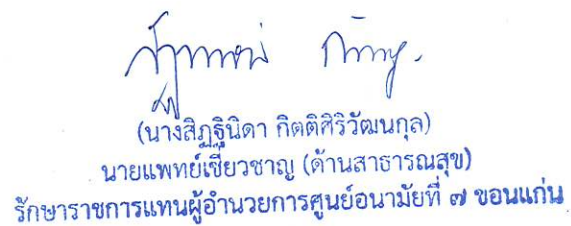 (นางสิฏฐินิดา กิตติศิริวัฒนกุล)
นายแพทย์เชี่ยวชาญ (ด้านสาธารณสุข)
รักษาราชการแทนผู้อำนวยการศูนย์อนามัยที่ ๗ ขอนแก่น